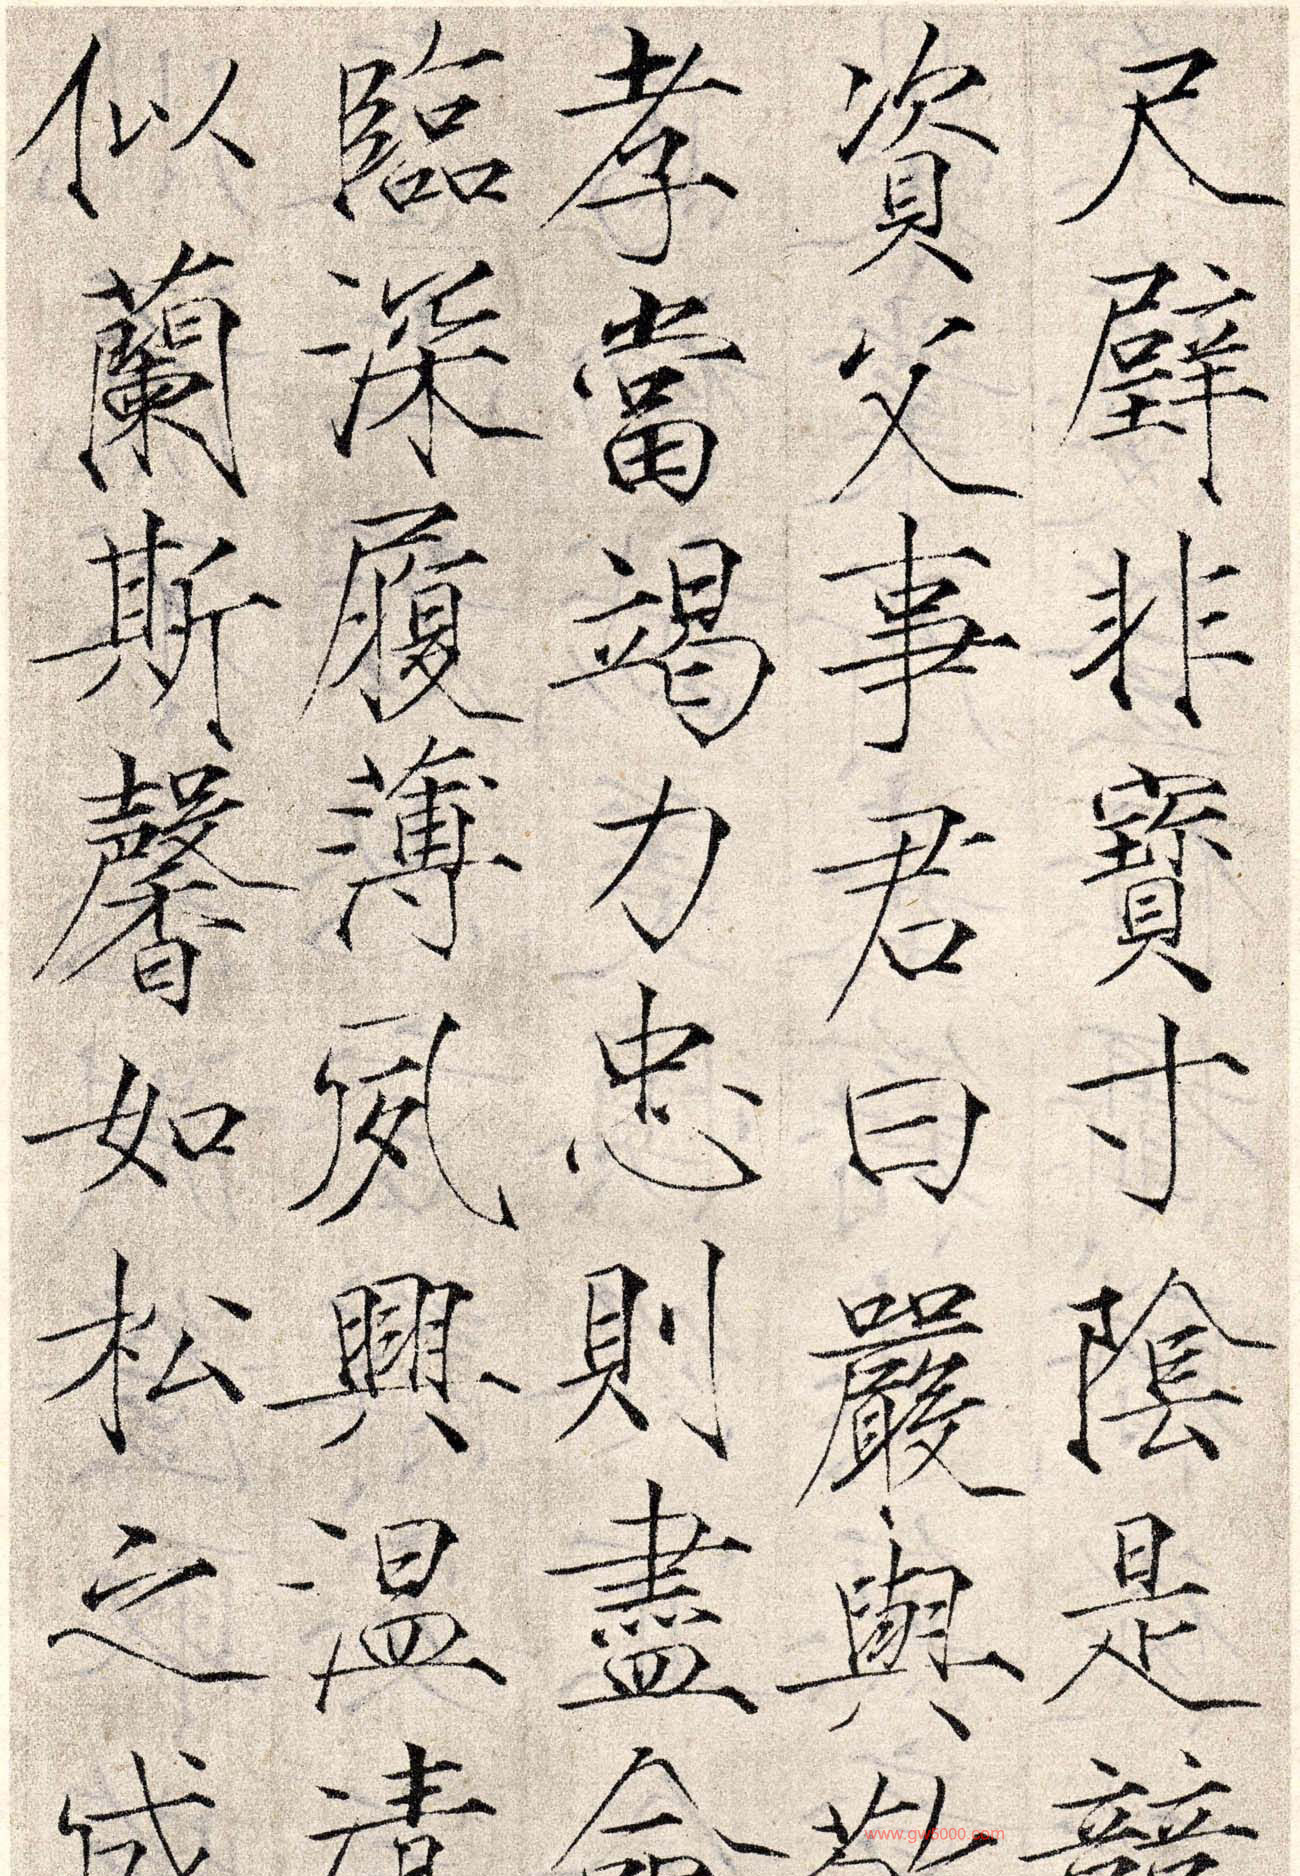 尺璧非寶寸陰是競
資父事君曰嚴與敬
孝當竭力忠則盡命
臨深履薄夙興温凊
似蘭斯馨如松之盛
www.gw5000.com